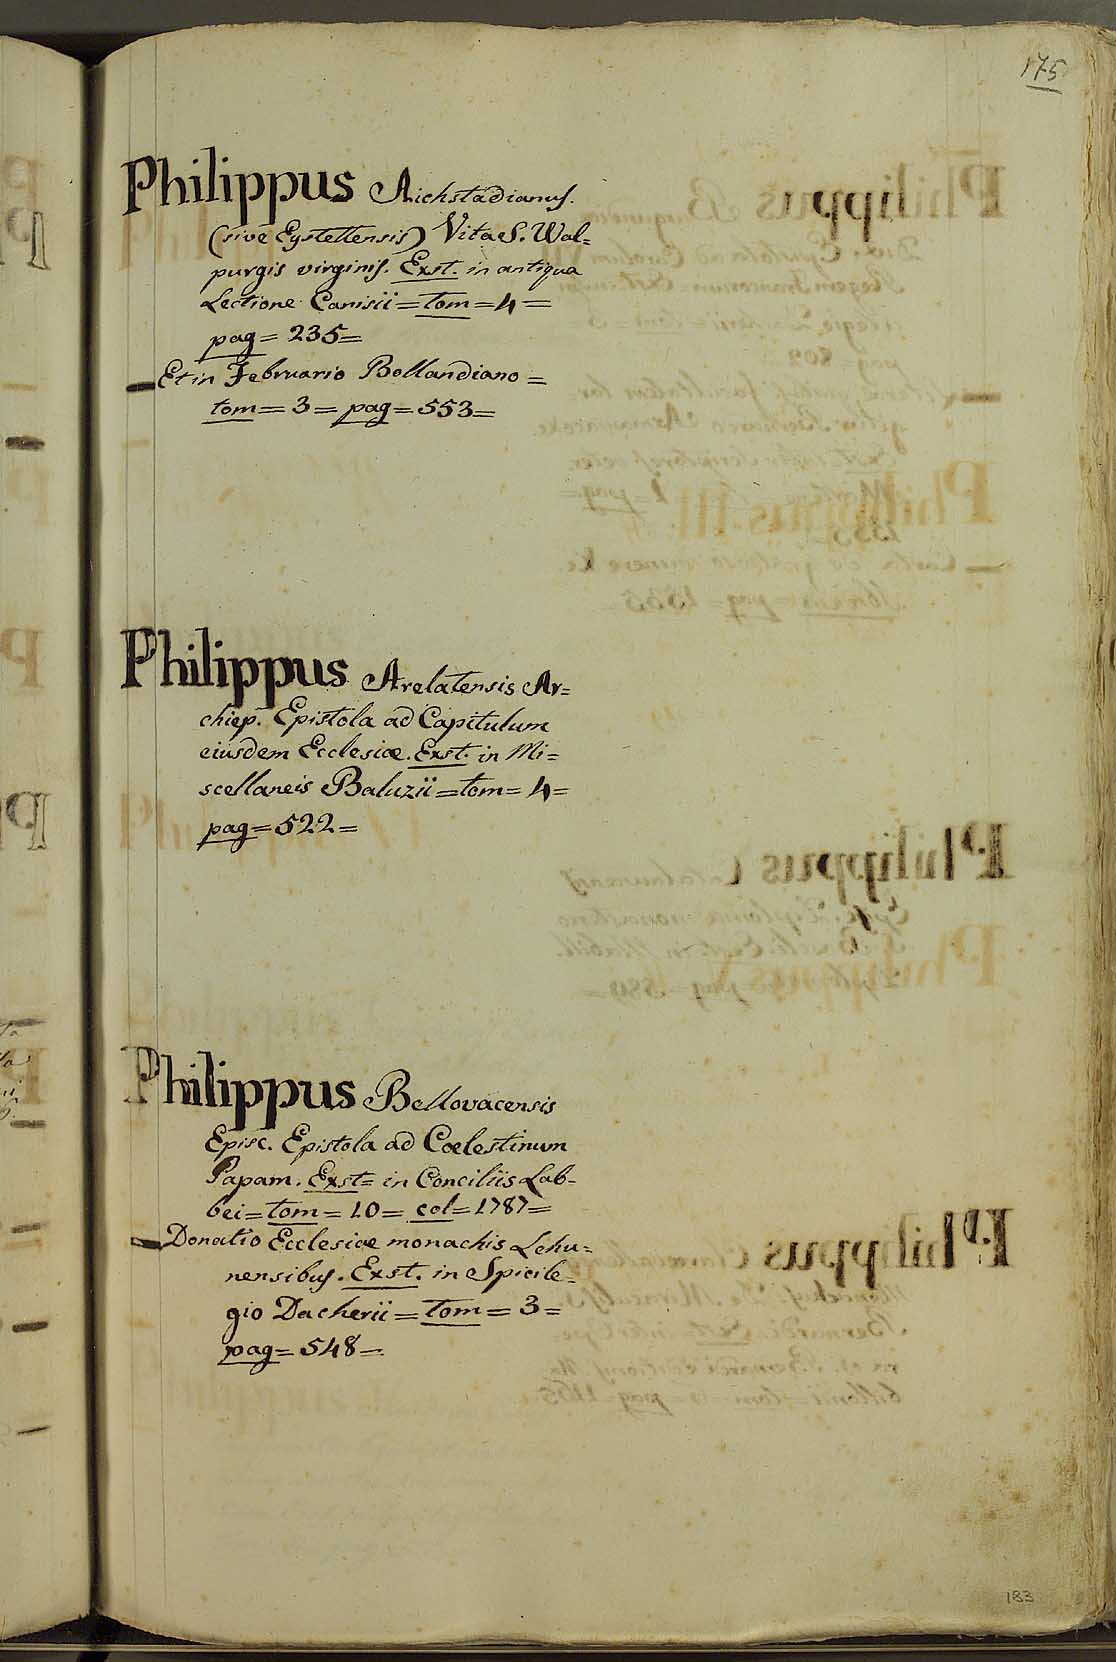 175
Philippus Aichstadianus.
(sive Eystettensis) Vita S. Wal=
purgis virginis. Exst. in antiqua
Lectione Canisii = tom = 4 =
pag = 235 =
Et in Februario Bollandiano =
tom = 3 = pag = 553 =
Philippus Arelatensis Ar=
chiep. Epistola ad Capitulum
eiusdem Ecclesiæ. Exst. in Mi=
scellaneis Baluzii = tom = 4 =
pag = 522 =
Philippus Bellovacensis
Episc. Epistola ad Coelestinum
Papam. Exst = in Conciliis Lab=
bei = tom = 10 = col = 1787 =
Donatio Ecclesiæ monachis Lehu=
nensibus. Exst. in Spicile=
gio Dacherii = tom = 3 =
pag = 548 =
183